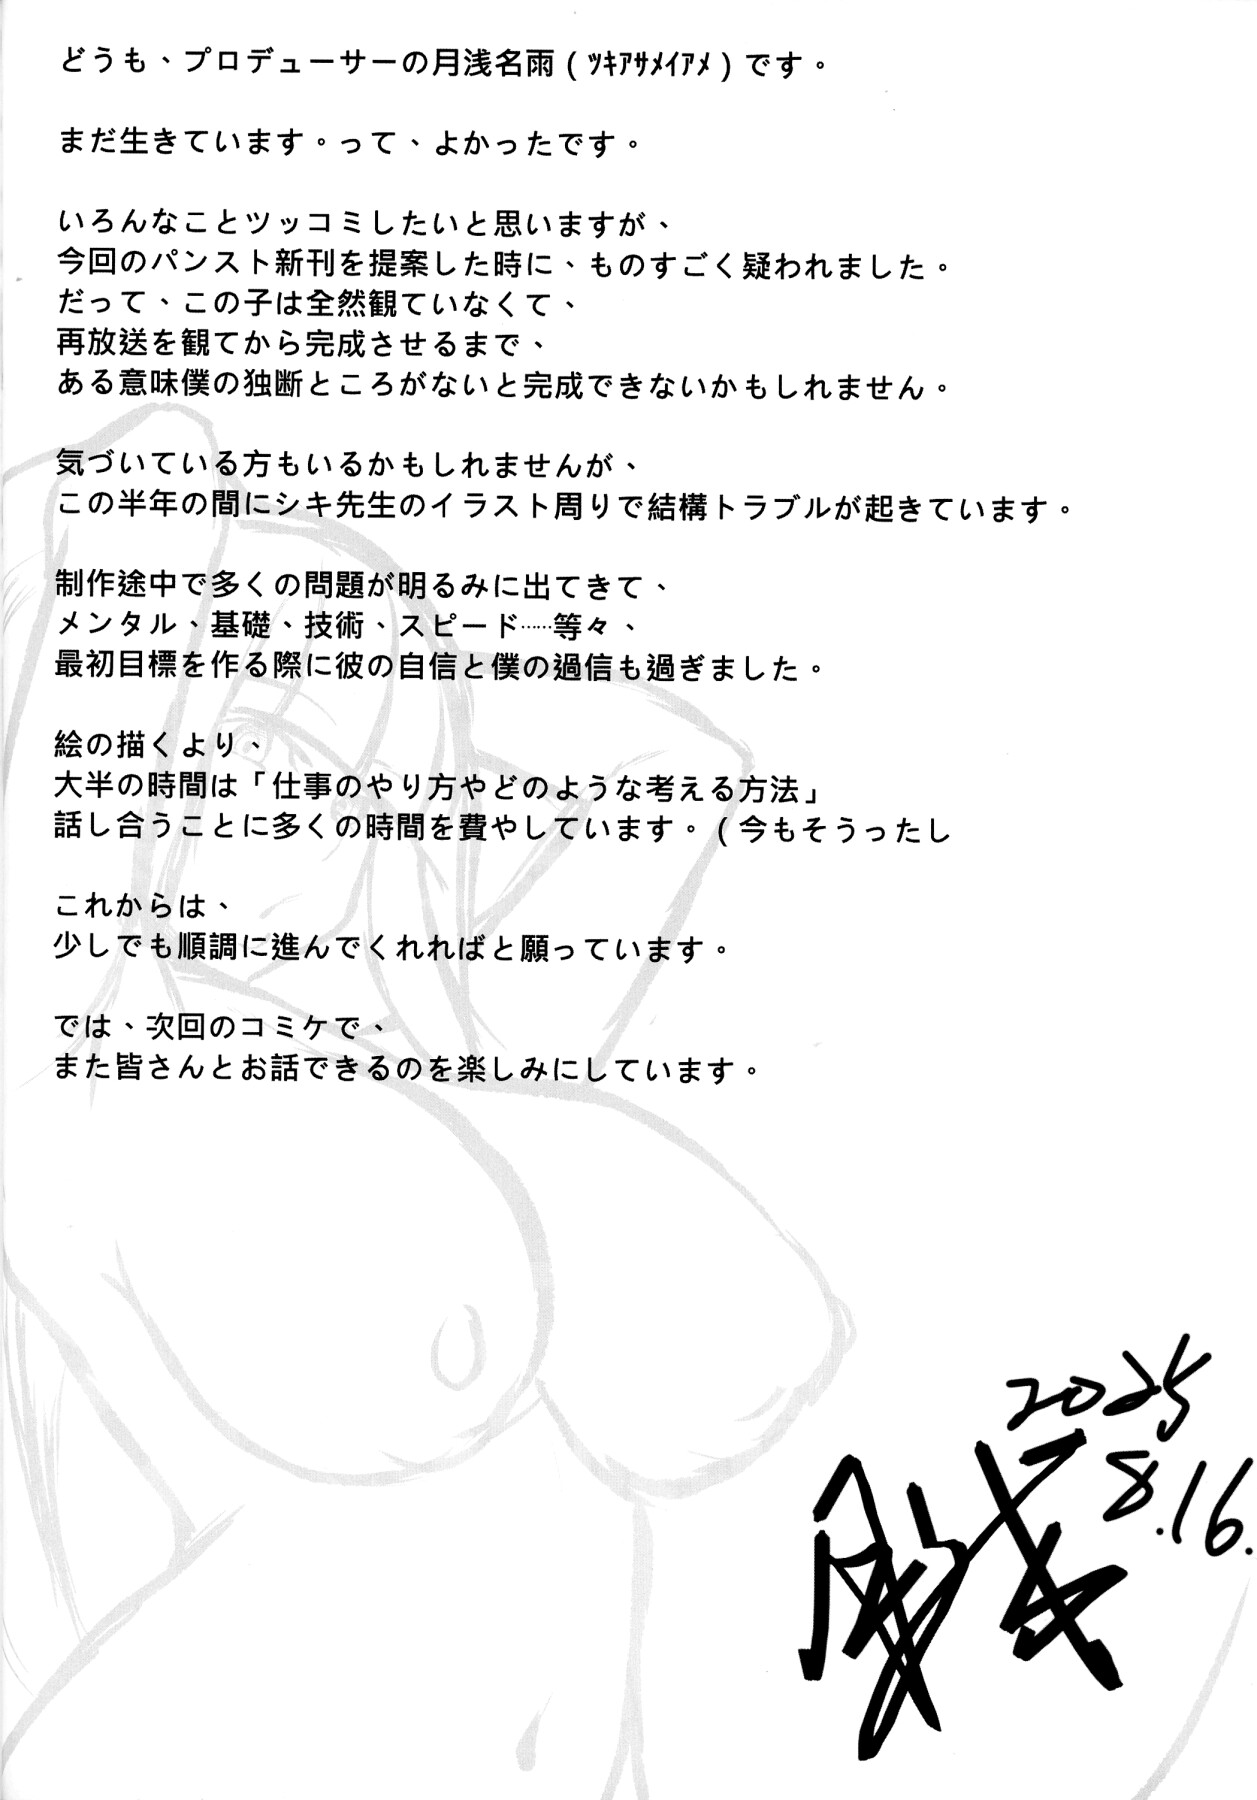 どうも、プロデューサーの月浅名雨(ﾂｷｱｻﾒｲｱﾒ)です。
まだ生きています。って、よかったです。
いろんなことツッコミしたいと思いますが、
今回のパンスト新刊を提案した時に、ものすごく疑われました。
だって、この子は全然観ていなくて、
再放送を観てから完成させるまで、
ある意味僕の独断ところがないと完成できないかもしれません。
気づいている方もいるかもしれませんが、
この半年の間にシキ先生のイラスト周りで結構トラブルが起きています。
制作途中で多くの問題が明るみに出てきて、
メンタル、基礎、技術、スピード……等々、
最初目標を作る際に彼の自信と僕の過信も過ぎました。
絵の描くより、
大半の時間は「仕事のやり方やどのような考える方法」
話し合うことに多くの時間を費やしています。(今もそうったし
これからは、
少しでも順調に進んでくれればと願っています。
では、次回のコミケで、
また皆さんとお話できるのを楽しみにしています。
2025
8.16.
月浅